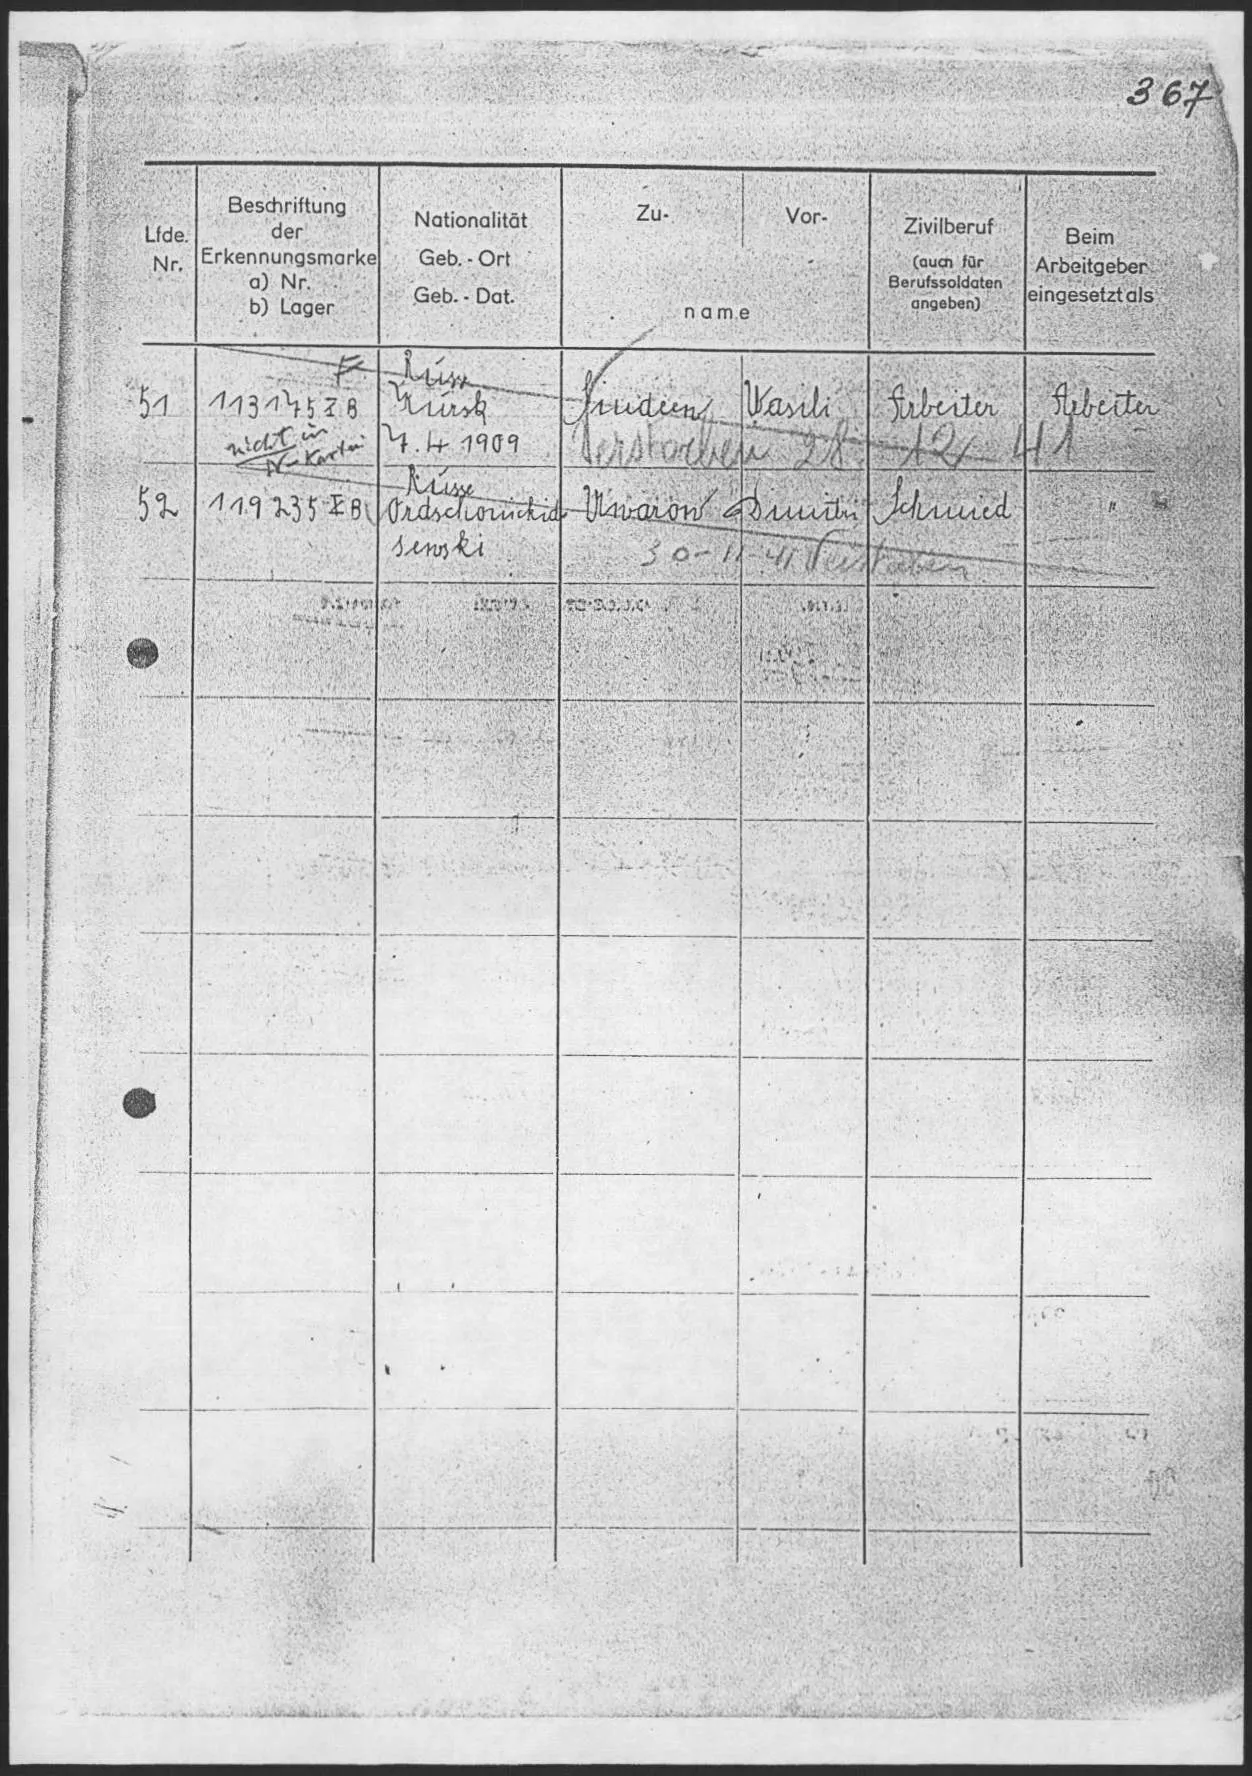 367
Lfde. Nr.
Beschriftung der Erkennungsmarke a) Nr. b) Lager
Nationalität Geb. - Ort Geb. - Dat.
Zu- Vor- name
Zivilberuf (auch für Berufssoldaten angeben)
Beim Arbeitgeber eingesetzt als
F. Russe
51 113175 X B Kursk Wasili Arbeiter Arbeiter
nicht in Kartei 7.4 1909 Verstorben 28. 12. 41
Russe
52 119235 X B Ordschonickid Uwarow Dimitri Schmied "
sewski 30-11 41 Verstorben